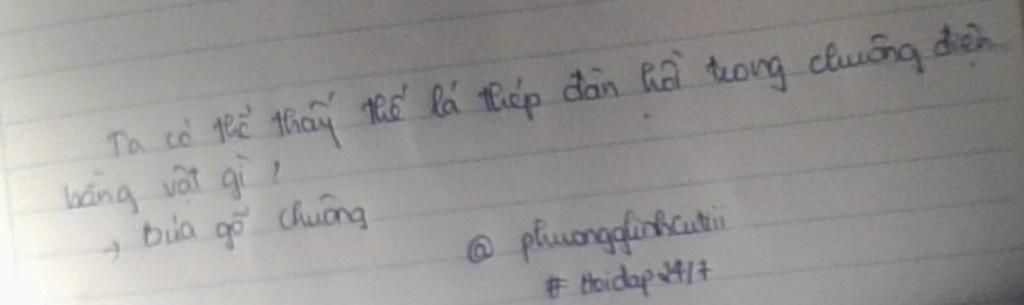 Ta có thể thấy thế lá thép đàn hồi trong chuông điện
bằng vật gì ?
→ búa gõ chuông
@ phuongglinhcutii
# Hoidap24/7